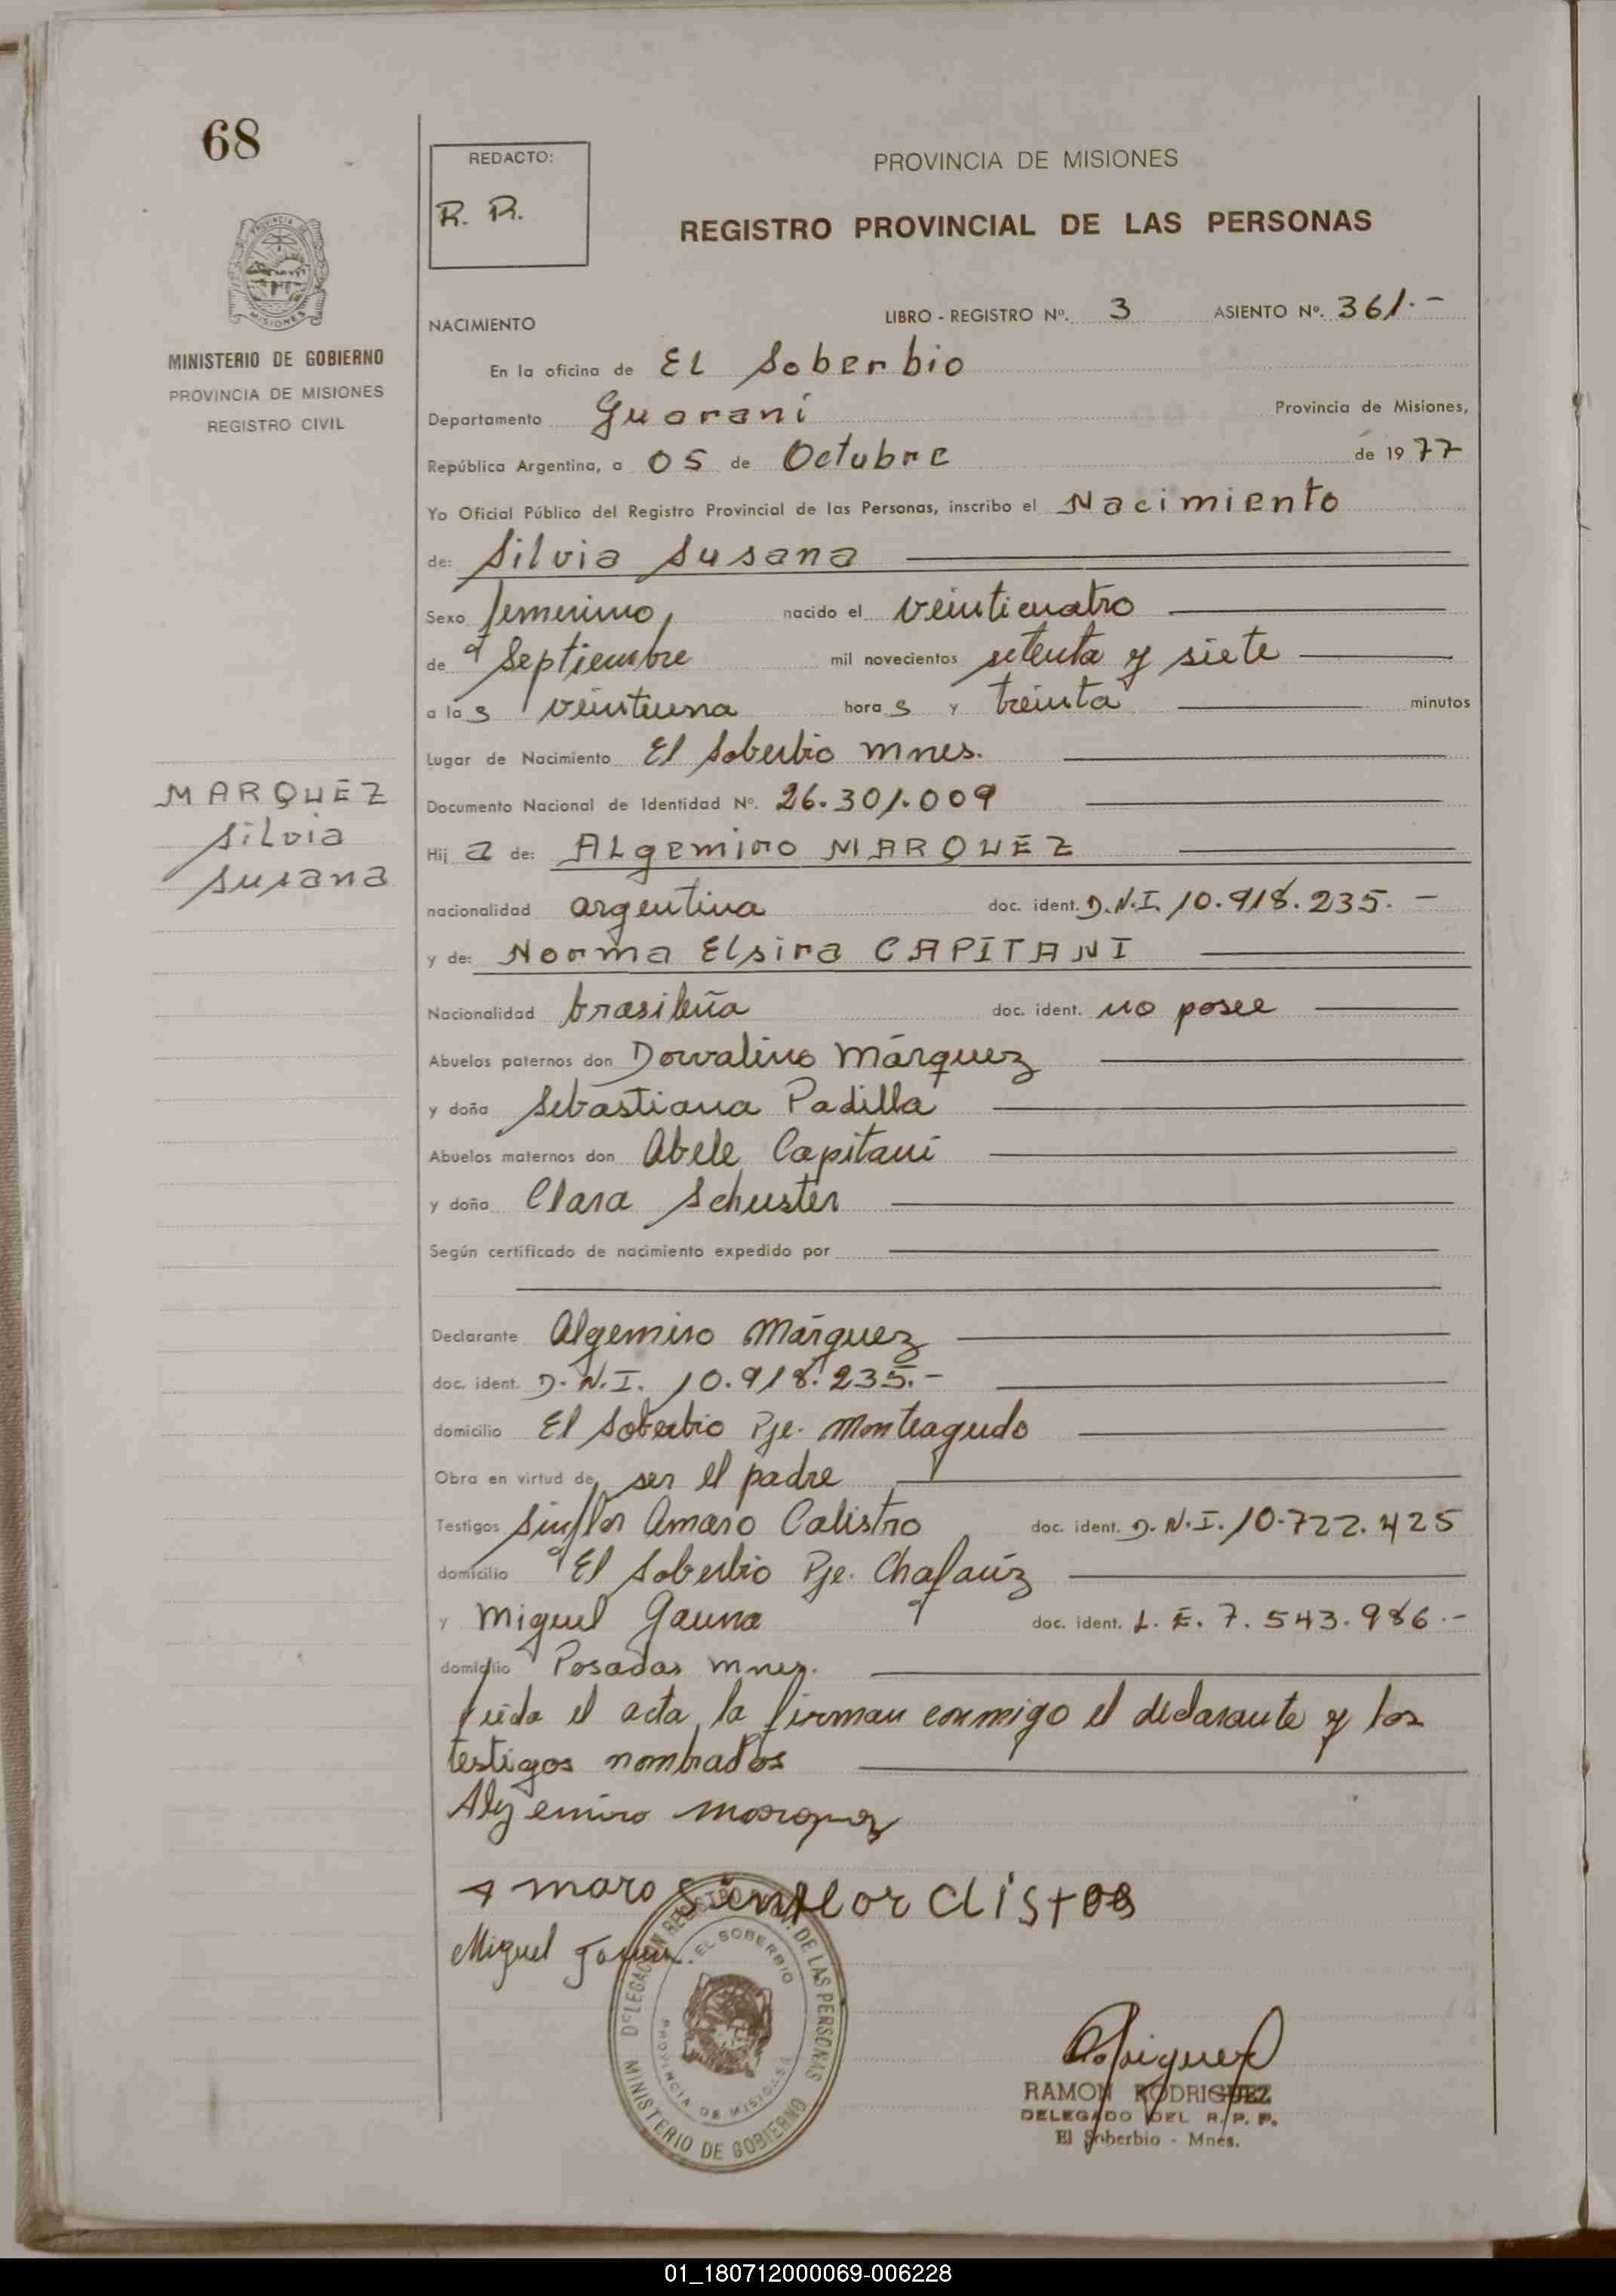 68
REDACTO:
R. R.
PROVINCIA DE MISIONES
REGISTRO PROVINCIAL DE LAS PERSONAS
MISIONES
MINISTERIO DE GOBIERNO
PROVINCIA DE MISIONES
REGISTRO CIVIL
NACIMIENTO
LIBRO - REGISTRO Nº. 3 ASIENTO Nº. 361.-
En la oficina de EL Soberbio
Departamento Guaraní Provincia de Misiones,
República Argentina, a 05 de Octubre de 1977
Yo Oficial Público del Registro Provincial de las Personas, inscribo el Nacimiento
de: Silvia Susana
Sexo femenino, nacido el veinticuatro
de Septiembre mil novecientos setenta y siete
a las veintiuna horas y treinta minutos
Lugar de Nacimiento El Soberbio Mnes.
Documento Nacional de Identidad Nº. 26.301.009
MARQUEZ
Silvia
Susana
Hija de: ALgemiro MARQUEZ
nacionalidad argentina doc. ident. D.N.I. 10.918.235.-
y de: Norma Elsira CAPITANI
Nacionalidad brasileña doc. ident. no posee
Abuelos paternos don Dorvalino Márquez
y doña Sebastiana Padilla
Abuelos maternos don Abele Capitani
y doña Clara Schuster
Según certificado de nacimiento expedido por
Declarante Algemiro Márquez
doc. ident. D.N.I. 10.918.235.-
domicilio El Soberbio Pje. Monteagudo
Obra en virtud de ser el padre
Testigos Sinflor Amaro Calistro doc. ident. D.N.I. 10.722.425
domicilio El Soberbio Pje. Chafariz
y Miguel Gauna doc. ident. L.E. 7.543.986.-
domicilio Posadas Mnes.
Leída el acta, la firman conmigo el declarante y los
testigos nombrados
Algemiro Marquez
Amaro Sinflor
Miguel
DELEGACION REGISTRO DE LAS PERSONAS
EL SOBERBIO
PROVINCIA DE MISIONES
MINISTERIO DE GOBIERNO
RAMON RODRIGUEZ
DELEGADO DEL R. P. P.
El Soberbio - Mnes.
01_180712000069-006228